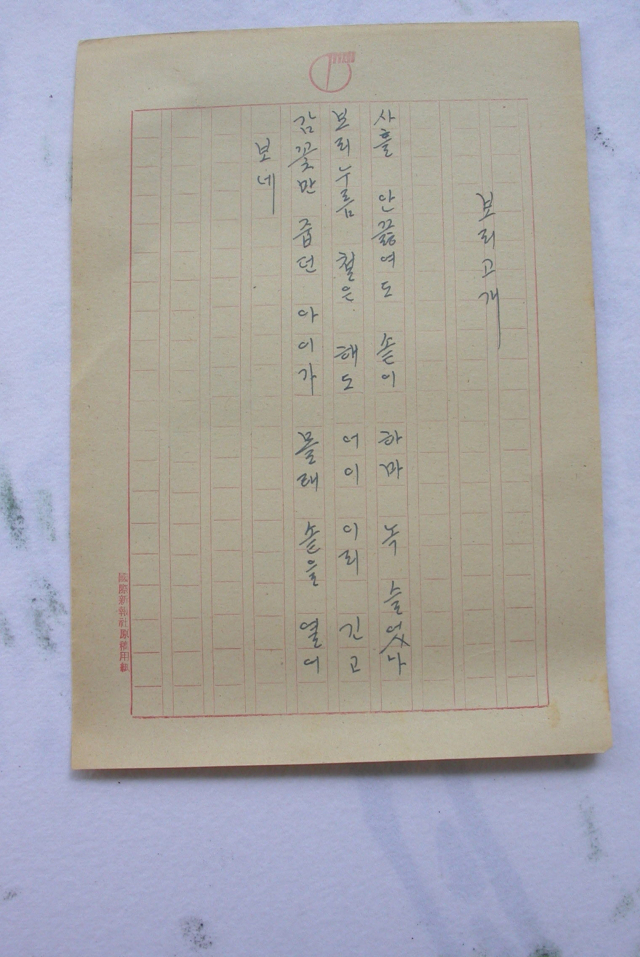 보리고개
사흘 안 끓여도 솥이 하마 녹 슬었나
보리누름 철은 해도 어이 이리 긴고
감꽃만 줍던 아이가 몰래 솥을 열어
보네
國際新報社原稿用紙